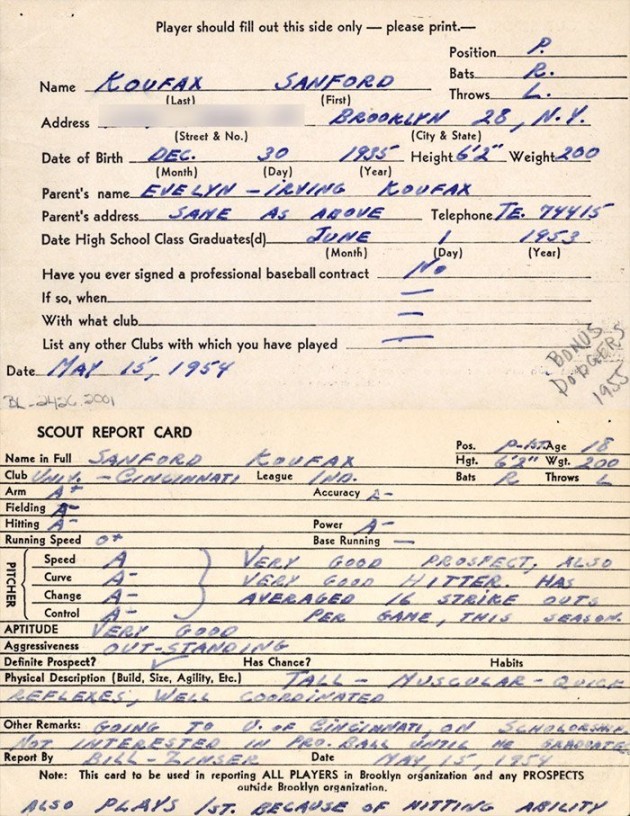 Player should fill out this side only — please print.—
Position P.
Name KOUFAX SANFORD Bats R.
(Last) (First) Throws L.
Address BROOKLYN 28, N.Y.
(Street & No.) (City & State)
Date of Birth DEC. 30 1935 Height 6'2" Weight 200
(Month) (Day) (Year)
Parent's name EVELYN - IRVING KOUFAX
Parent's address SAME AS ABOVE Telephone TE. 74415
Date High School Class Graduates(d) JUNE 1 1953
(Month) (Day) (Year)
Have you ever signed a professional baseball contract No
If so, when —
With what club —
List any other Clubs with which you have played —
Date MAY 15, 1954
BONUS
DODGERS
1955
BL-2426.2001
SCOUT REPORT CARD
Pos. P-1st Age 18
Name in Full SANFORD KOUFAX Hgt. 6'2" Wgt. 200
Club UNIV. - CINCINNATI League IND. Bats R Throws L
Arm A+ Accuracy A-
Fielding A-
Hitting A- Power A-
Running Speed O+ Base Running —
PITCHER
Speed A VERY GOOD PROSPECT, ALSO
Curve A- VERY GOOD HITTER. HAS
Change A- AVERAGED 16 STRIKE OUTS
Control A- PER GAME, THIS SEASON.
APTITUDE VERY GOOD
Aggressiveness OUT-STANDING
Definite Prospect? ✓ Has Chance? Habits
Physical Description (Build, Size, Agility, Etc.) TALL - MUSCULAR - QUICK
REFLEXES, WELL COORDINATED
Other Remarks: GOING TO U. OF CINCINNATI, ON SCHOLORSHIP.
NOT INTERESTED IN PRO. BALL UNTIL HE GRADUATES
Report By BILL - ZINSER Date MAY, 15, 1954
Note: This card to be used in reporting ALL PLAYERS in Brooklyn organization and any PROSPECTS
outside Brooklyn organization.
ALSO PLAYS 1ST. BECAUSE OF HITTING ABILITY